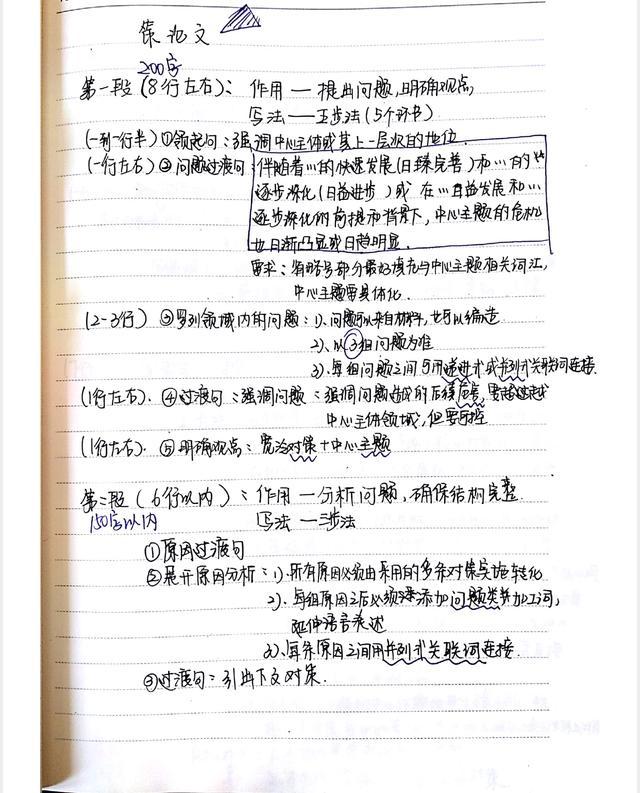 策论文
200字
第一段(8行左右): 作用 — 提出问题,明确观点,
写法 — 五步法(5个环节)
(一到一行半)①领起句:强调中心主体或其上一层次的地位.
(一行左右)②问题过渡句:伴随着…的快速发展(日臻完善)和…的
逐步深化(日益进步)或 在…日益发展和…
逐步深化的前提和背景下,中心主题的危机
也日渐凸显或日趋明显.
要求:省略号部分最好填充与中心主题相关词汇,
中心主题要具体化.
(2-3行) ③罗列领域内的问题:1)、问题可以来自材料,也可以编造
2)、以③组问题为准
3)、每组问题之间 用递进式或并列式关联词连接.
(1行左右). ④过渡句:强调问题:强调问题造成的后续危害,
中心主体领域,但要可控
(1行左右). ⑤明确观点:宽泛对策+中心主题
第二段(6行以内):作用 — 分析问题,确保结构完整.
150字以内
写法 — 三步法
①原因过渡句
②展开原因分析:1)、所有原因必须由采用的多条对策实施转化
2)、每组原因之后必须添加问题类并加工词,
延伸语言表述
3)、每条原因之间用并列式关联词连接.
③过渡句:引出下文对策.